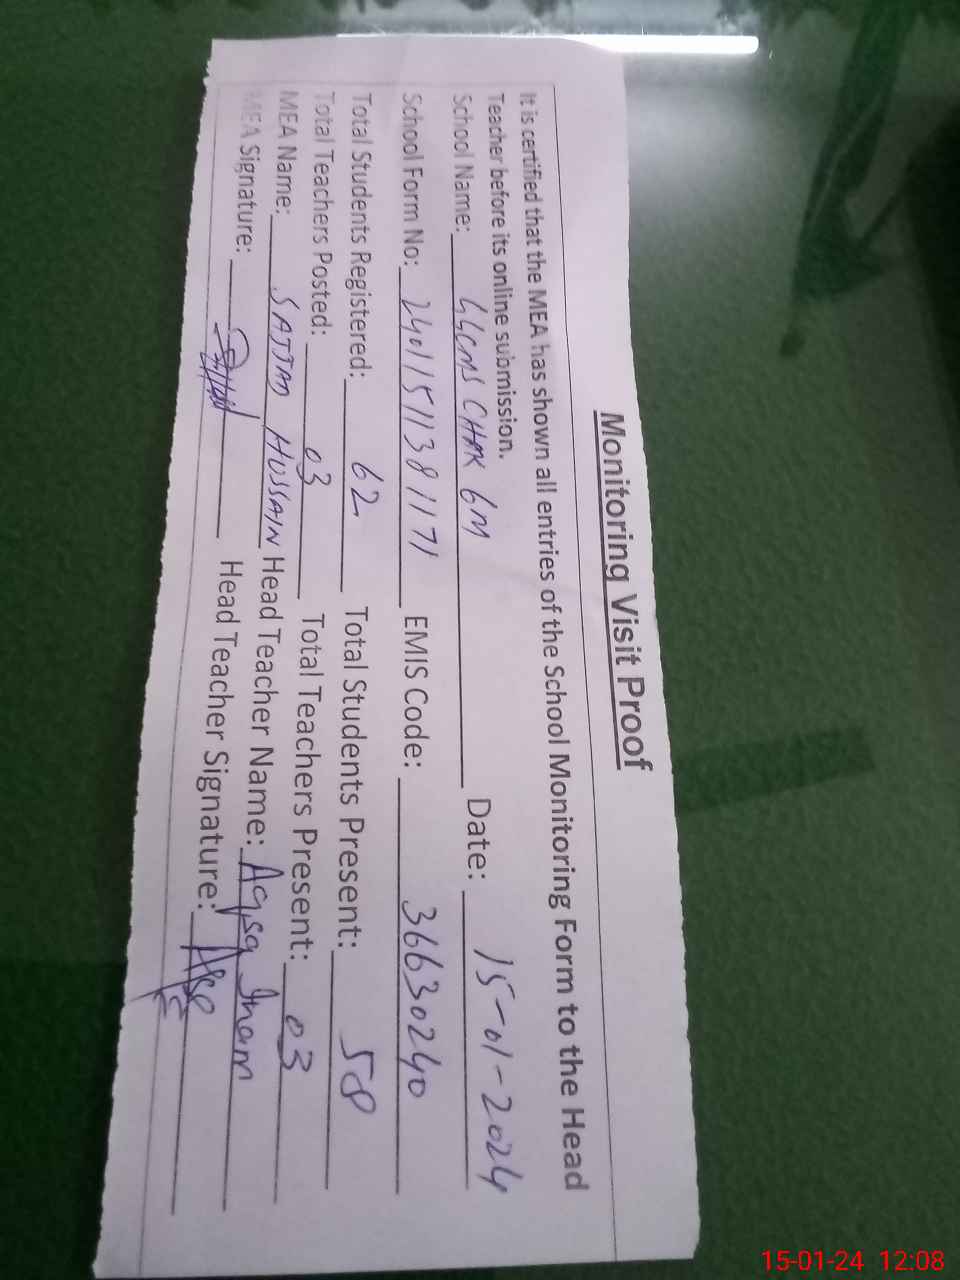 Monitoring Visit Proof
It is certified that the MEA has shown all entries of the School Monitoring Form to the Head
Teacher before its online submission.
School Name: GGCMS CHAK 6M Date: 15-01-2024
School Form No: 24011511381171 EMIS Code: 36630240
Total Students Registered: 62 Total Students Present: 58
Total Teachers Posted: 03 Total Teachers Present: 03
MEA Name: SAJJAD HUSSAIN Head Teacher Name: Aqsa Inam
MEA Signature: Head Teacher Signature:
15-01-24 12:08